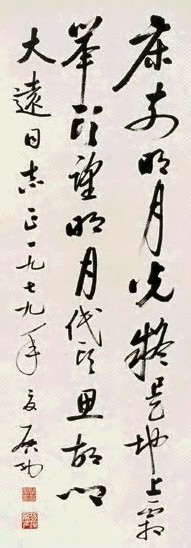 床前明月光疑是地上霜
舉頭望明月低頭思故鄉
大遠同志正一九七九年夏启功